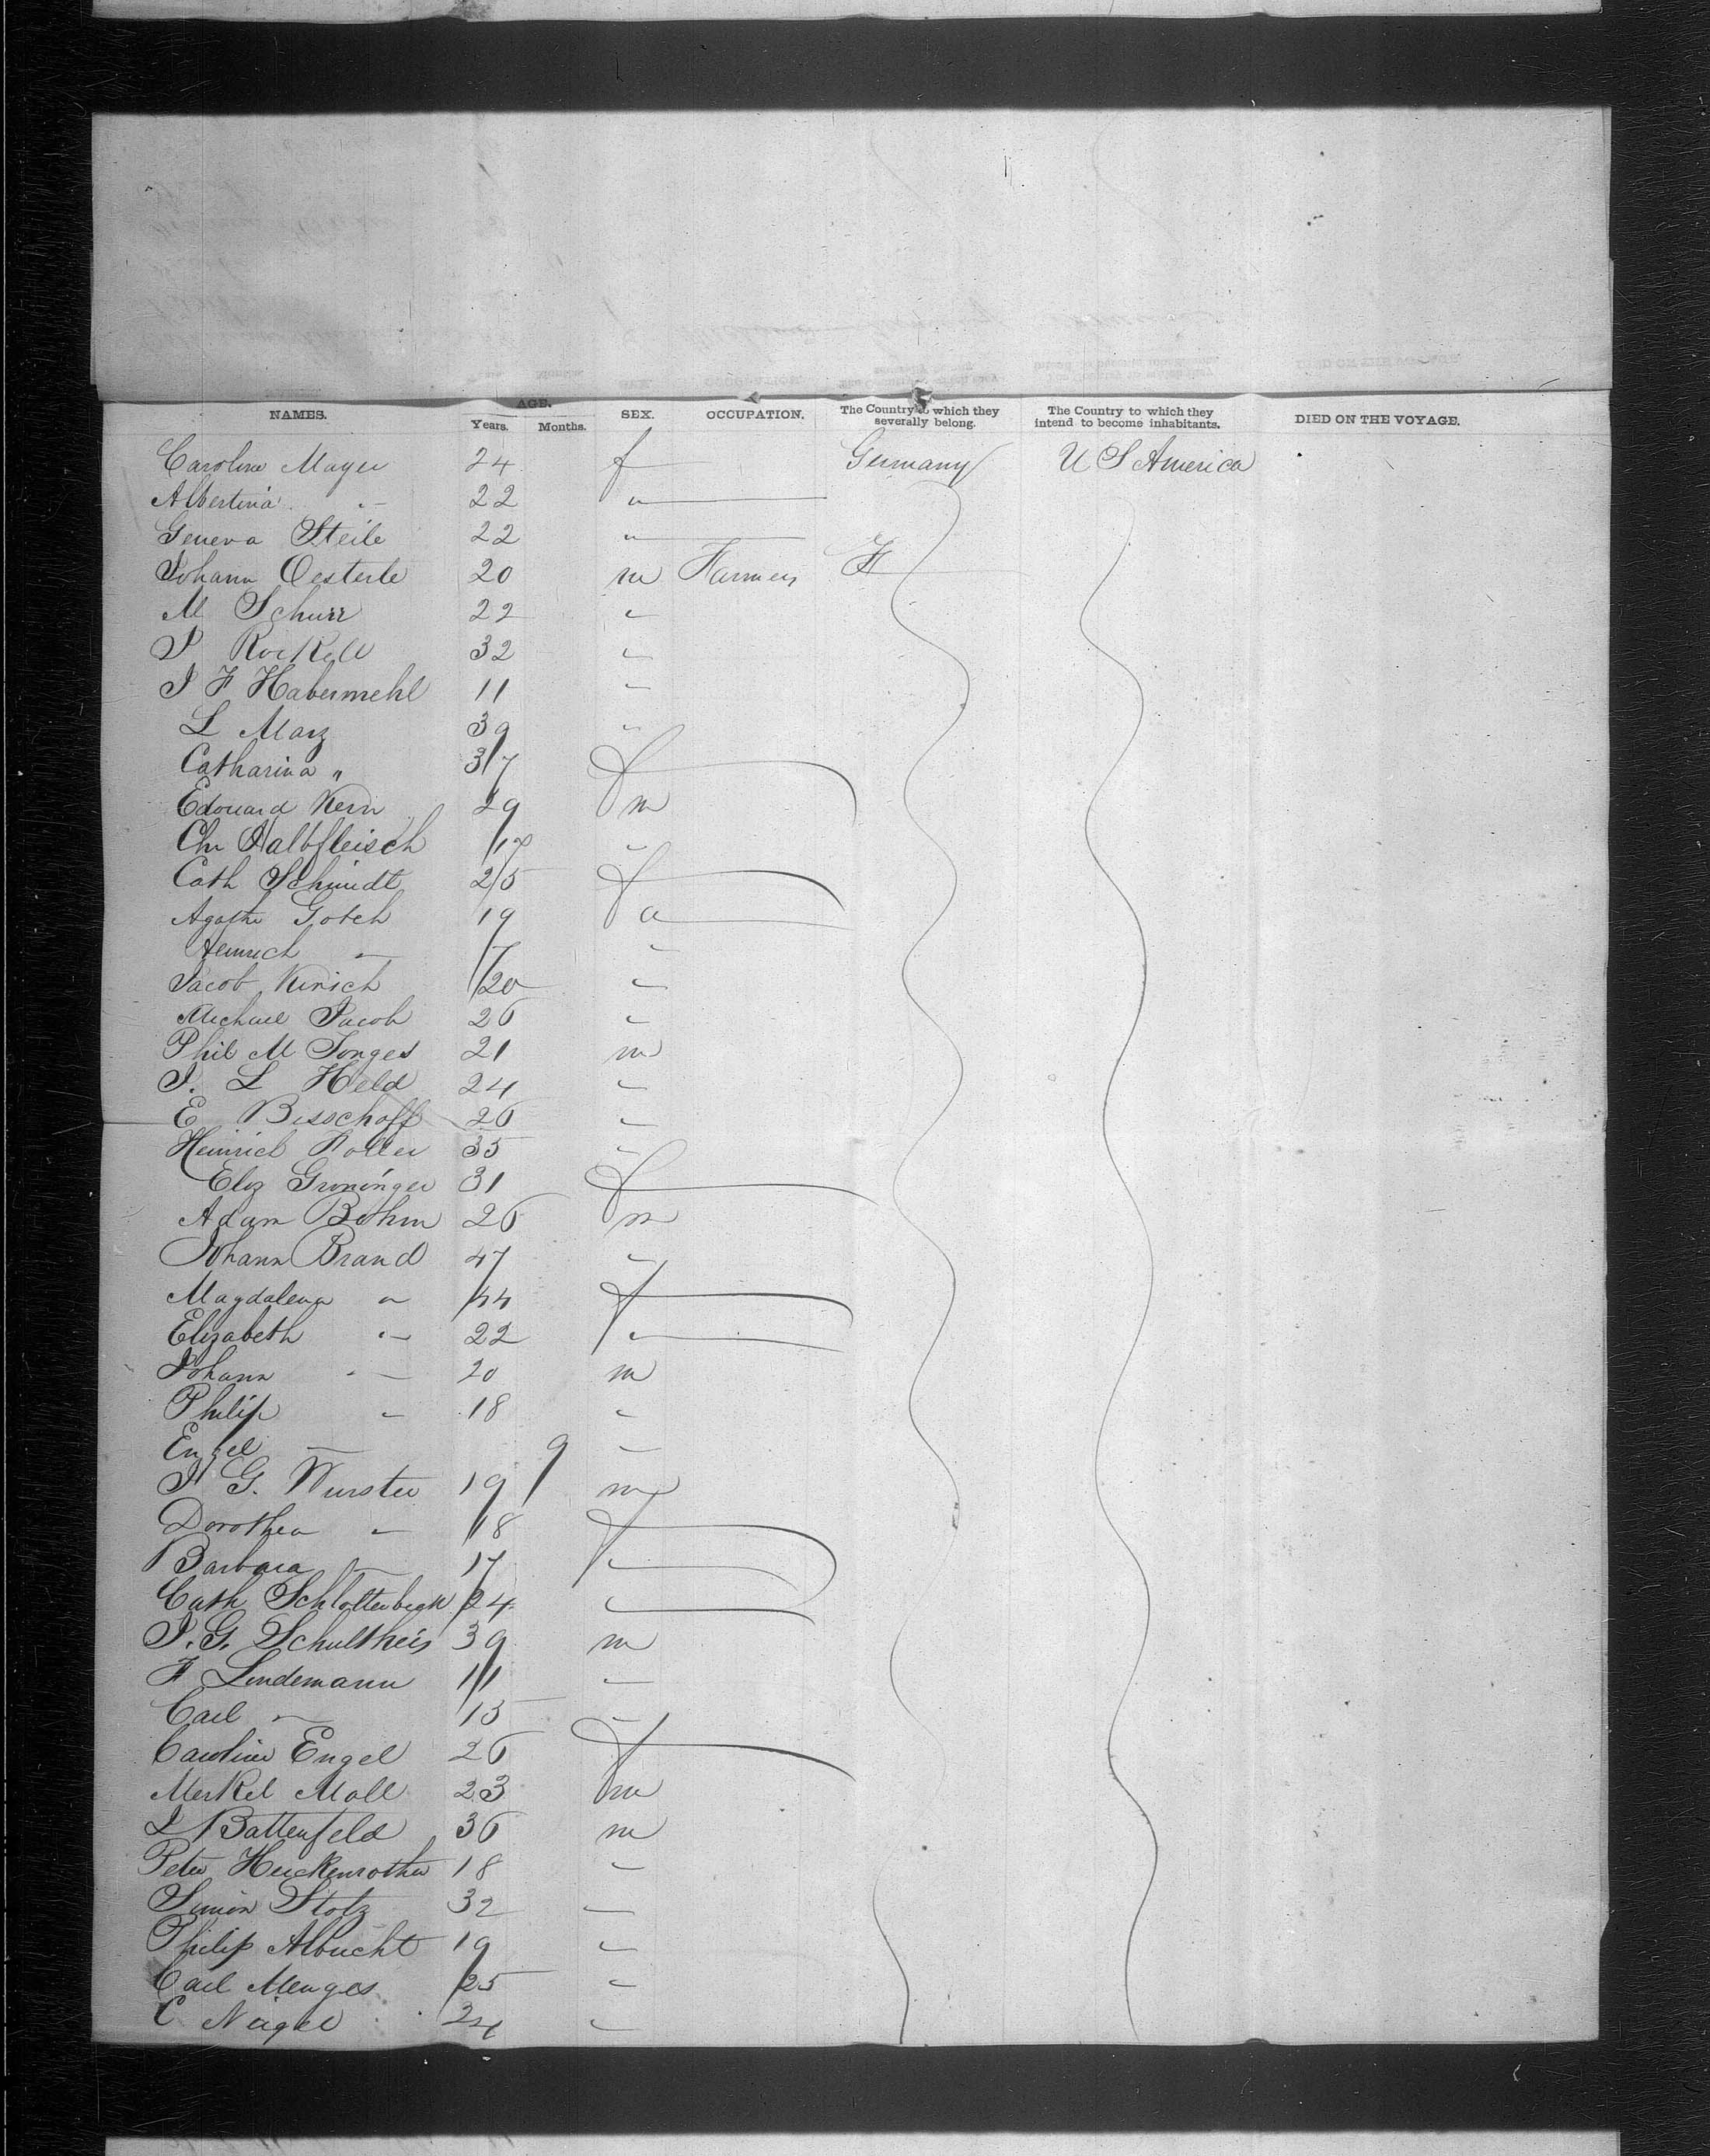 NAMES. AGE. Years. Months. SEX. OCCUPATION. The Country to which they severally belong. The Country to which they intend to become inhabitants. DIED ON THE VOYAGE.
Caroline Mayer 24 f Germany U S America
Albertina " 22 "
Geneva Steile 22 "
Johann Oesterle 20 m Farmers
M Schurr 22 "
J 32 "
J F Habermehl 11 "
L Marz 39 "
Catharina " 37 f
Edouard Kern 29 m
Chr Halbfleisch 17 "
Cath Schmidt 25 f
Agathe Gotch 19 "
Heinrich " 7 "
Jacob Kirsch 20 "
Michael Jacob 26 "
Phil M Jonges 21 m
J. L Held 24 "
E Bisschoff 26 "
Heinrich 35 "
Eliz Groninger 31 f
Adam Bohm 26 m
Johann Brand 47 "
Magdalena " 44 f
Elizabeth " 22 "
Johann " 20 m
Philip " 18 "
Engel " 9 "
J G. Wurster 19 m
Dorothea " 18 f
Barbara " 17 "
Cath Schlottenbeck 24 "
J. G. Schultheis 39 m
F Lindemann 11 "
Carl " 15 "
Caroline Engel 26 f
Merkel Moll 23 m
L Battenfeld 36 m
Peter Heuckenrother 18 "
Simon Stotz 32 "
Philip Albucht 19 "
Carl Menges 25 "
C Nagel 24 "